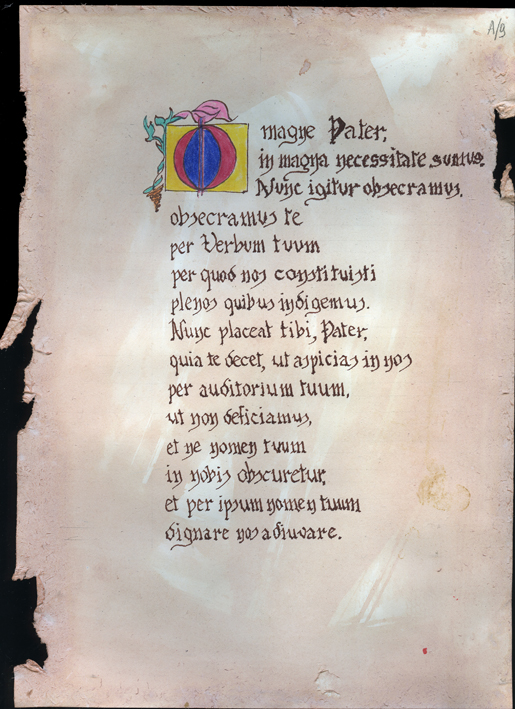 A/9
O magne Pater,
in magna necessitate sumus.
Nunc igitur obsecramus,
obsecramus te
per Verbum tuum
per quod nos constituisti
plenos quibus indigemus.
Nunc placeat tibi, Pater,
quia te decet, ut aspicias in nos
per auditorium tuum,
ut non deficiamus,
et ne nomen tuum
in nobis obscuretur,
et per ipsum nomen tuum
dignare nos adiuvare.